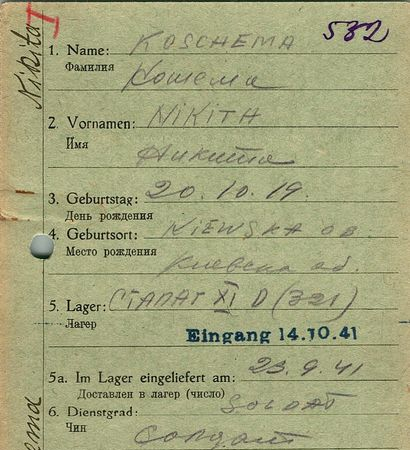 532
1. Name: KOSCHEMA
Фамилия Кошема
2. Vornamen: NIKITA
Имя Никита
3. Geburtstag: 20.10.19.
День рождения
4. Geburtsort: KIEWSKA OB.
Место рождения Киевска об.
5. Lager: СТАЛАГ XI D (321)
Лагер
Eingang 14.10.41
5a. Im Lager eingeliefert am: 23.9.41
Доставлен в лагер (число)
6. Dienstgrad: SOLDAT
Чин Солдат
Nikita
I